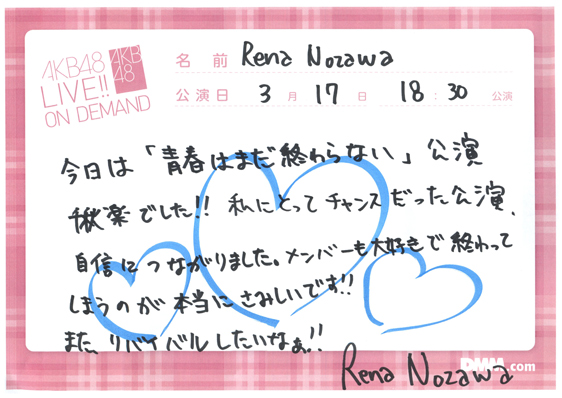 AKB48
LIVE!!
ON DEMAND
AKB
48
名前 Rena Nozawa
公演日 3月17日 18:30 公演
今日は「青春はまだ終わらない」公演
楸楽でした!! 私にとってチャンスだった公演、
自信につながりました。メンバーも大好きで終わって
しまうのが本当にさみしいです!!
また、リバイバルしたいなぁ!!
Rena Nozawa
DMM.com